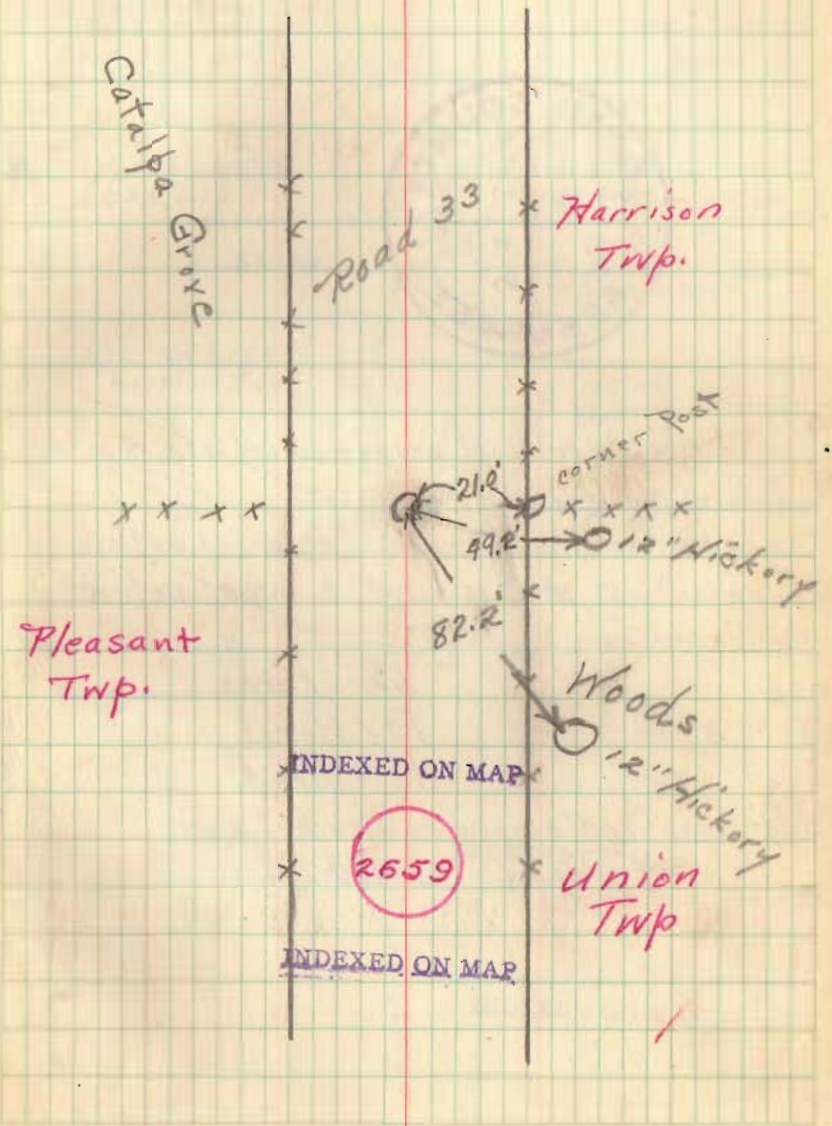 Catalpa Grove
Road 33
Harrison
Twp.
corner Post
21.0'
49.2'
12" Hickory
82.2'
Pleasant
Twp.
Woods
12" Hickory
INDEXED ON MAP
2659
Union
Twp
INDEXED ON MAP